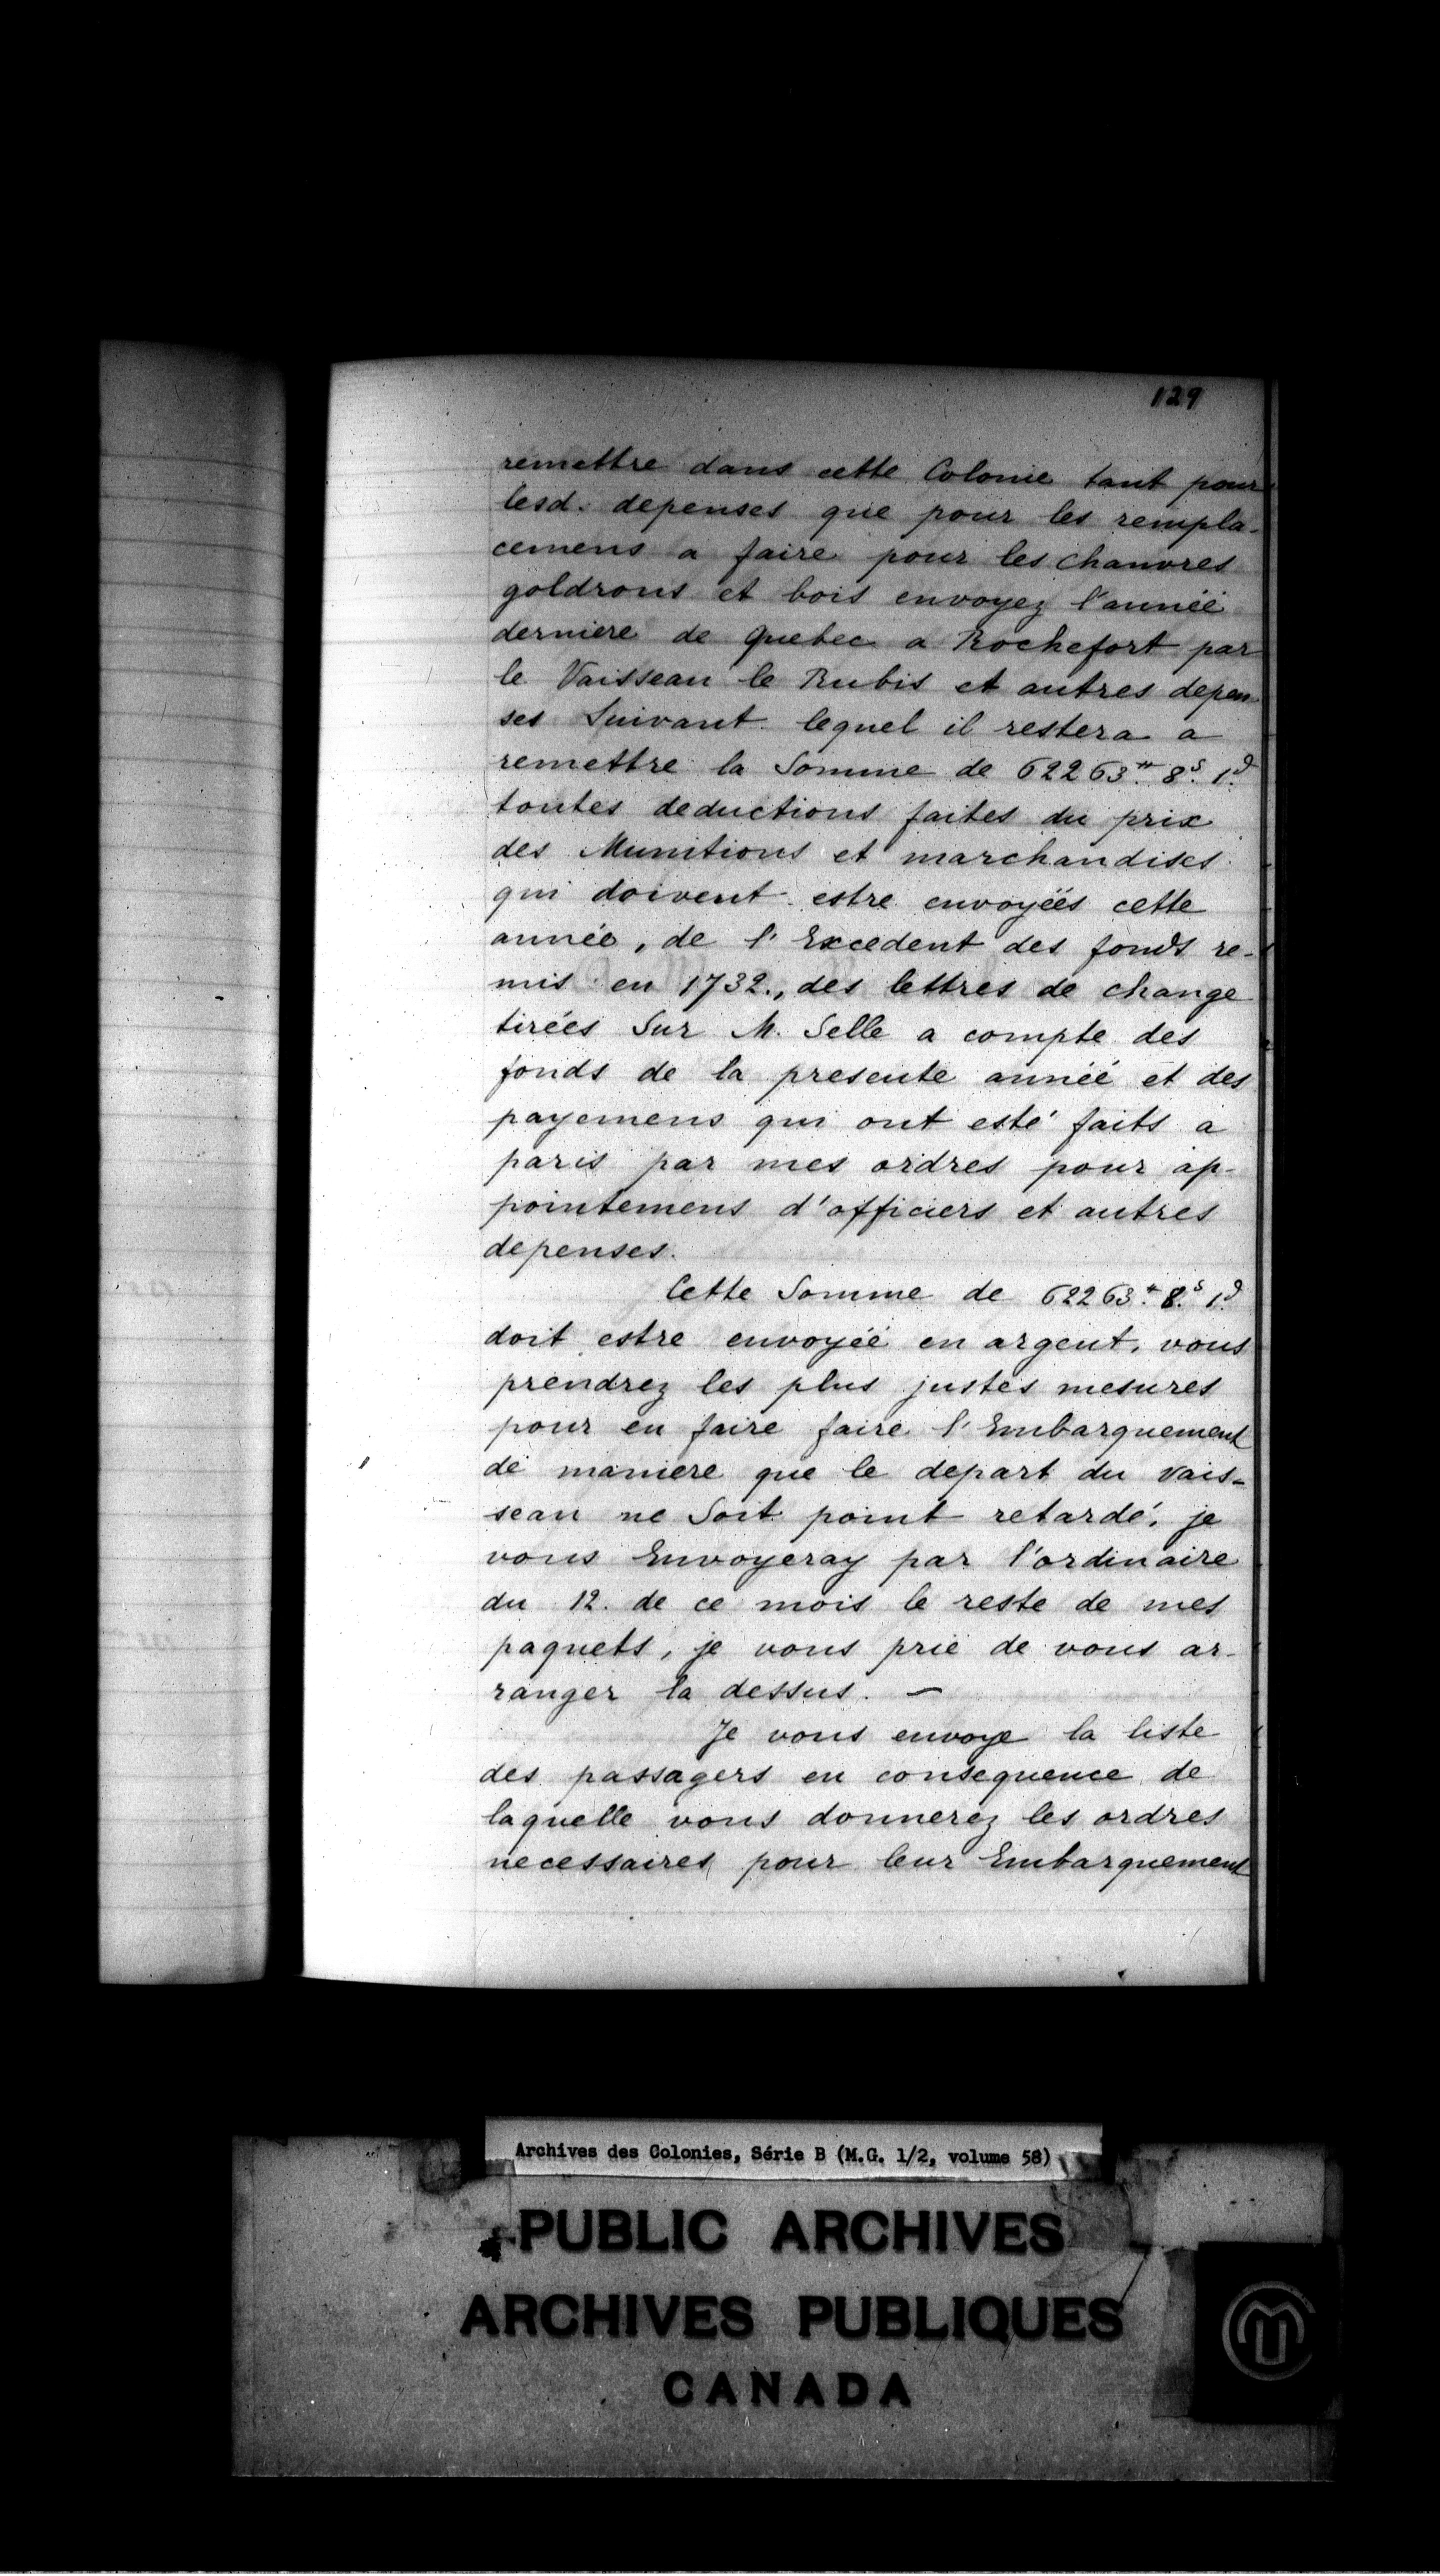 129
remettre dans cette Colonie tant pour
lesd. depenses que pour les rempla-
cemens a faire pour les chanvres
goldrons et bois envoyez l'année
derniere de Quebec a Rochefort par
le Vaisseau le Rubis et autres depen-
ses Suivant lequel il restera a
remettre la Somme de 62263.tt 8.s 1.d
toutes deductions faites du prix
des Munitions et marchandises
qui doivent estre envoyëes cette
année, de l'Excedent des fonds re-
mis en 1732., des lettres de change
tirées Sur M. Selle a compte des
fonds de la presente année et des
payemens qui ont esté faits a
paris par mes ordres pour ap-
pointemens d'officiers et autres
depenses.
Cette Somme de 62263.tt 8.s 1.d
doit estre envoyéé en argent, vous
prendrez les plus justes mesures
pour en faire faire l'Embarquement
de maniere que le depart du vais-
seau ne Soit point retardé, je
vous Envoyeray par l'ordinaire
du 12. de ce mois le reste de mes
paquets, je vous prie de vous ar-
ranger la dessus. —
Je vous envoye la liste
des passagers en consequence de
laquelle vous donnerez les ordres
necessaires pour leur Embarquement
Archives des Colonies, Série B (M.G. 1/2, volume 58)
PUBLIC ARCHIVES
ARCHIVES PUBLIQUES
CANADA